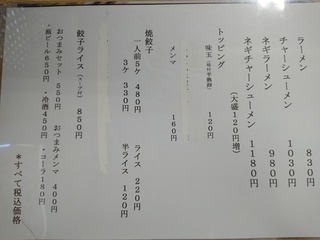 ラーメン 830円
チャーシューメン 1030円
ネギラーメン 980円
ネギチャーシューメン 1180円
(大盛120円増)
トッピング
味玉(味付半熟卵) 120円
メンマ 160円
焼餃子
一人前5ケ 480円
3ケ 330円
ライス 220円
半ライス 120円
餃子ライス(スープ付) 850円
おつまみセット 550円
おつまみメンマ 400円
・瓶ビール650円
・冷酒450円
・コーラ180円
*すべて税込価格